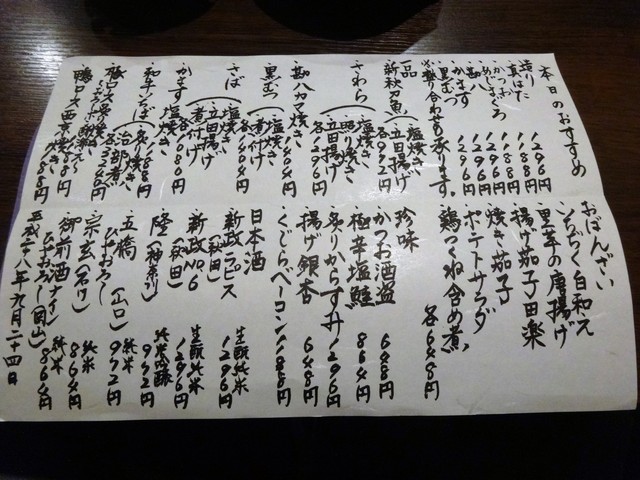 本日のおすすめ
造り
真はた 1296円
めじまぐろ 1188円
かつお 1188円
勘八 1296円
かます 1296円
黒むつ 1296円
※盛り合わせも承ります。
一品
新秋刀魚 塩焼き 立田揚げ 各972円
さわら 塩焼き 照り焼き 立田揚げ 各1296円
勘八カマ焼き 1404円
黒むつ 塩焼き 煮付け 各1404円
さば 塩焼き 立田揚げ 煮付け
かます 塩焼き 各1080円
和牛いちぼ 炙り焼き 1188円
鴨ロース 西京焼き
おばんざい
いちぢく白和え
里芋の唐揚げ
揚げ茄子田楽
焼き茄子
ポテトサラダ
鶏つくね含め煮
各648円
珍味
かつお酒盗 648円
極辛塩鮭 864円
炙りからすみ 1296円
揚げ銀杏 648円
くじらベーコン 1188円
日本酒
新政ラピス(秋田) 生酛純米 1296円
新政No.6(秋田) 生酛純米 1296円
隆(神奈川) 純米吟醸 972円
五橋 ひやおろし(山口) 純米 972円
宗玄(石川) 純米 864円
御前酒 ナイン ひやおろし(岡山) 純米 864円
平成二十八年九月二十四日